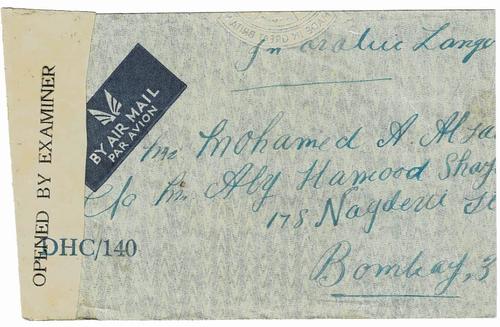 In arabic Langu
BY AIR MAIL
PAR AVION
Mr Mohamed A. Alsa
c/o Mr. Aly Hamood Shay
178 Nagdevi St
Bombay, 3
OPENED BY EXAMINER
DHC/140